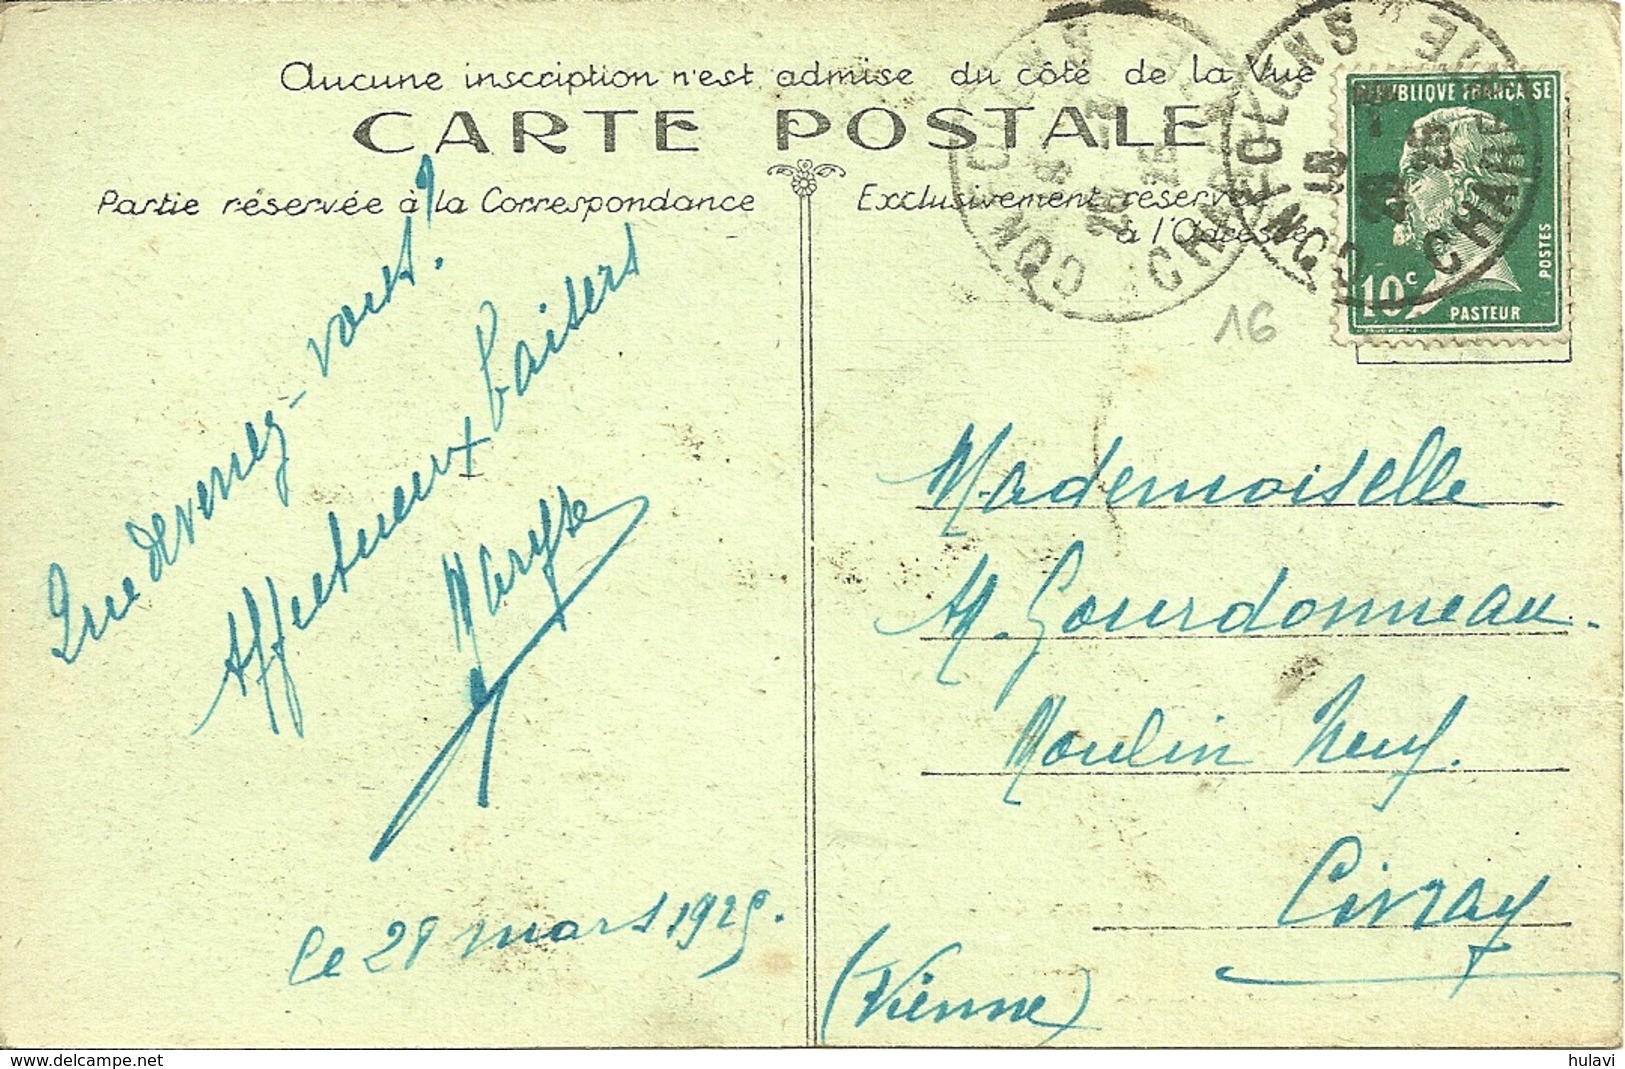 Aucune inscription n'est admise du côté de la Vue
CARTE POSTALE
Partie réservée à la Correspondance
Exclusivement réservée
à l'Adresse
CONFOLENS
CHARENTE
CONFOLENS
CHARENTE
18
RÉPUBLIQUE FRANÇAISE
POSTES
10c
PASTEUR
16
Que devenez-vous?
Affectueux baisers
Maryse
le 28 mars 1925.
Mademoiselle
M. Gourdonneau.
Moulin Neuf.
Civray
(Vienne)
www.delcampe.net
hulavi